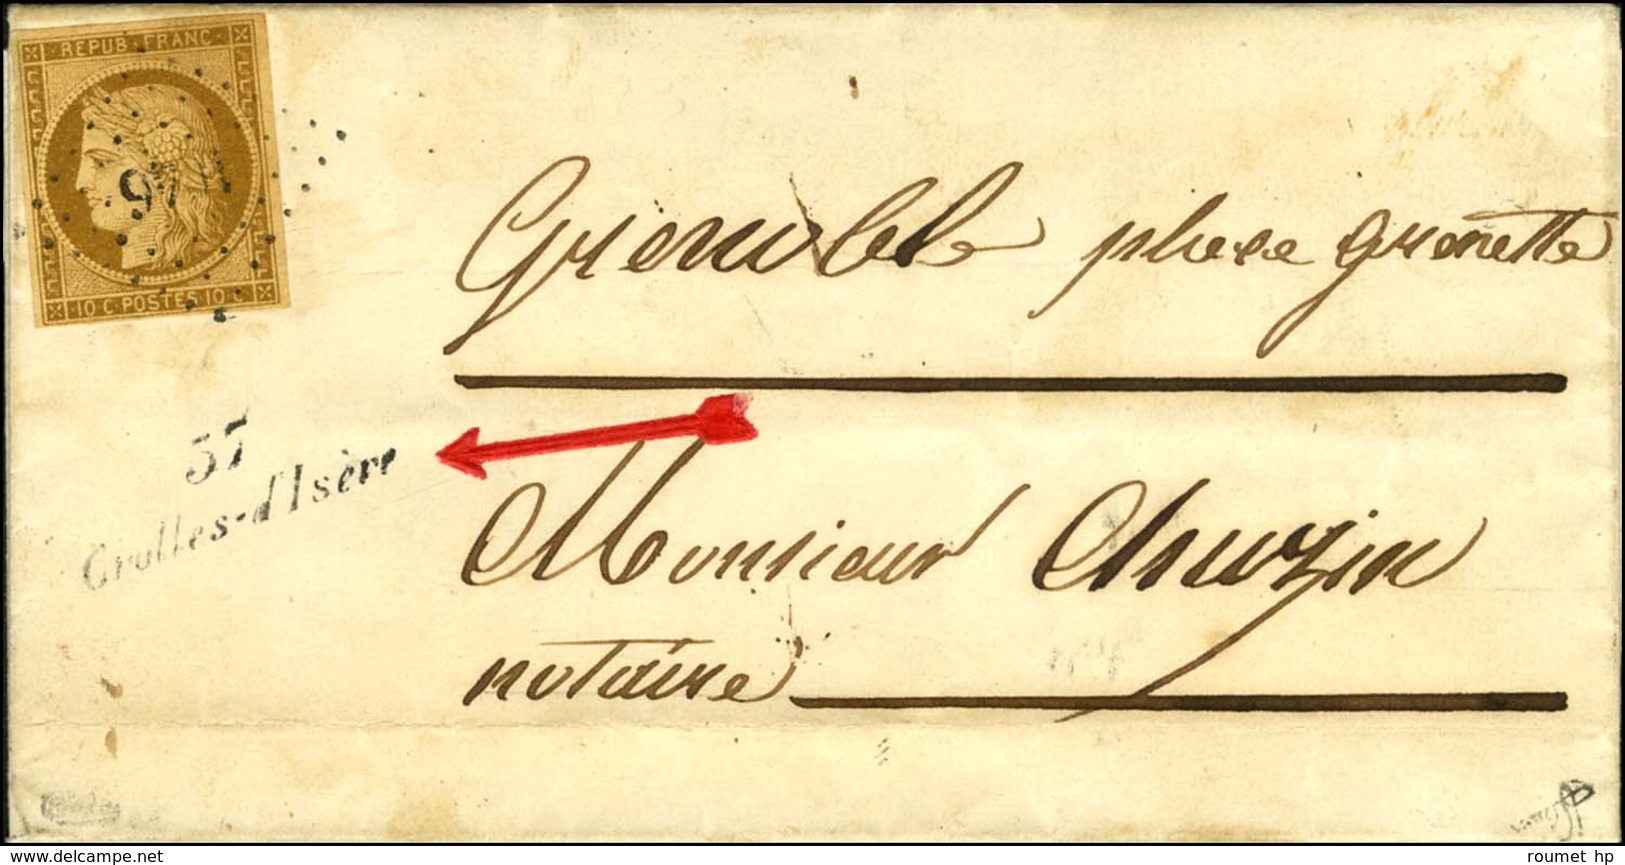 REPUB. FRANC.
10 C. POSTES 10 C.
Grenoble place grenette
37
Crolles-d'Isère
Monsieur Chuzin
notaire
delcampe.net
roumet hp